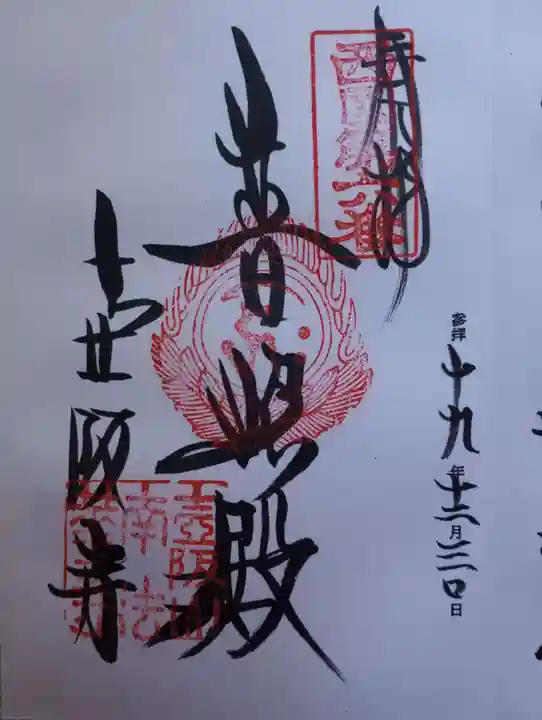 奉拝
西国第六番
参拝 十九年十二月三〇日
普照殿
壺阪寺
壺阪山
南法
華寺